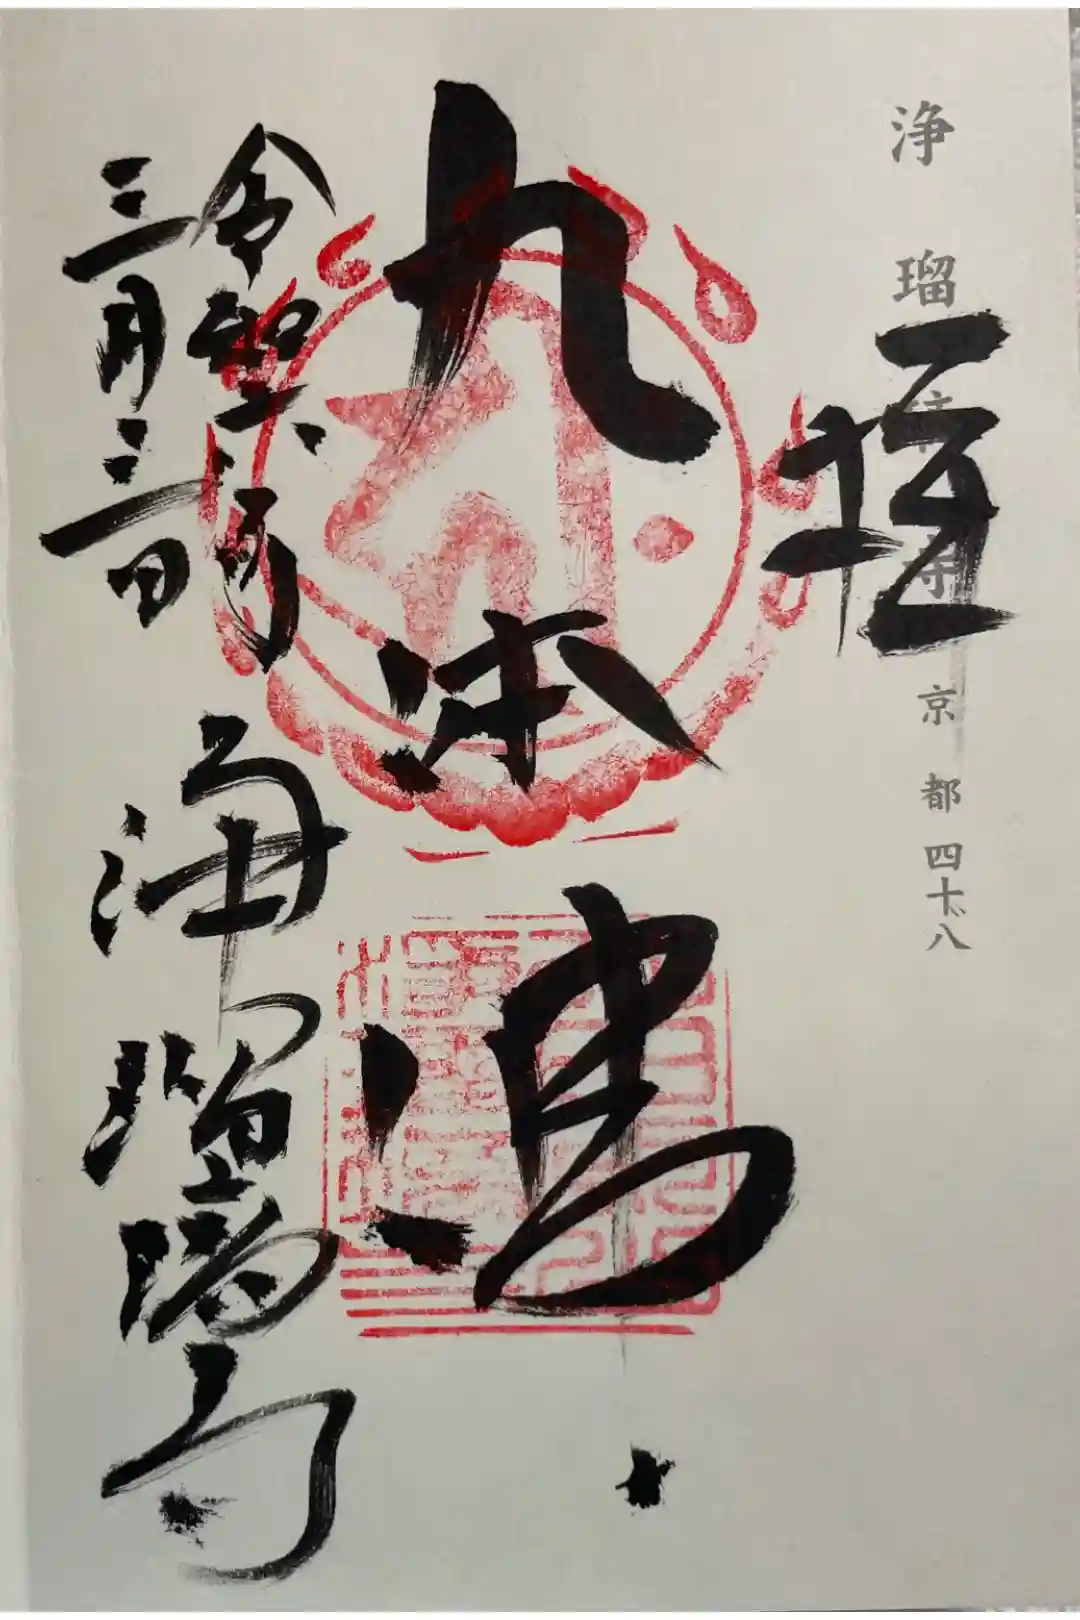 浄瑠璃寺 京都 四十八
拝
九体佛
令和六年
三月三日
浄瑠璃寺